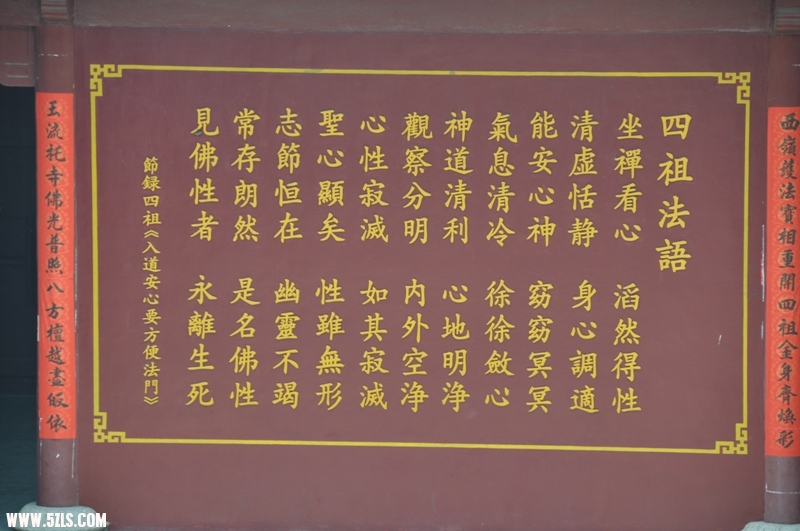 西嶺護法寶相重開四祖金身齊煥形
四祖法語
坐禪看心 滔然得性
清虛恬静 身心調適
能安心神 窈窈冥冥
氣息清冷 徐徐斂心
神道清利 心地明净
觀察分明 内外空净
心性寂滅 如其寂滅
聖心顯矣 性雖無形
志節恒在 幽靈不竭
常存朗然 是名佛性
見佛性者 永離生死
節録四祖《入道安心要方便法門》
玉流托寺佛光普照八方檀越盡皈依
WWW.5ZLS.COM